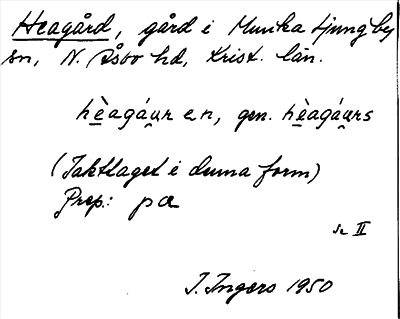 Heagård, gård i Munka Ljungby
sn, N. Åsbo hd, Krist. län.
hèagáu̯r en, gen. hèagáu̯rs
(Iakttaget i denna form)
Prep.: pæ
II
I. Ingers 1950